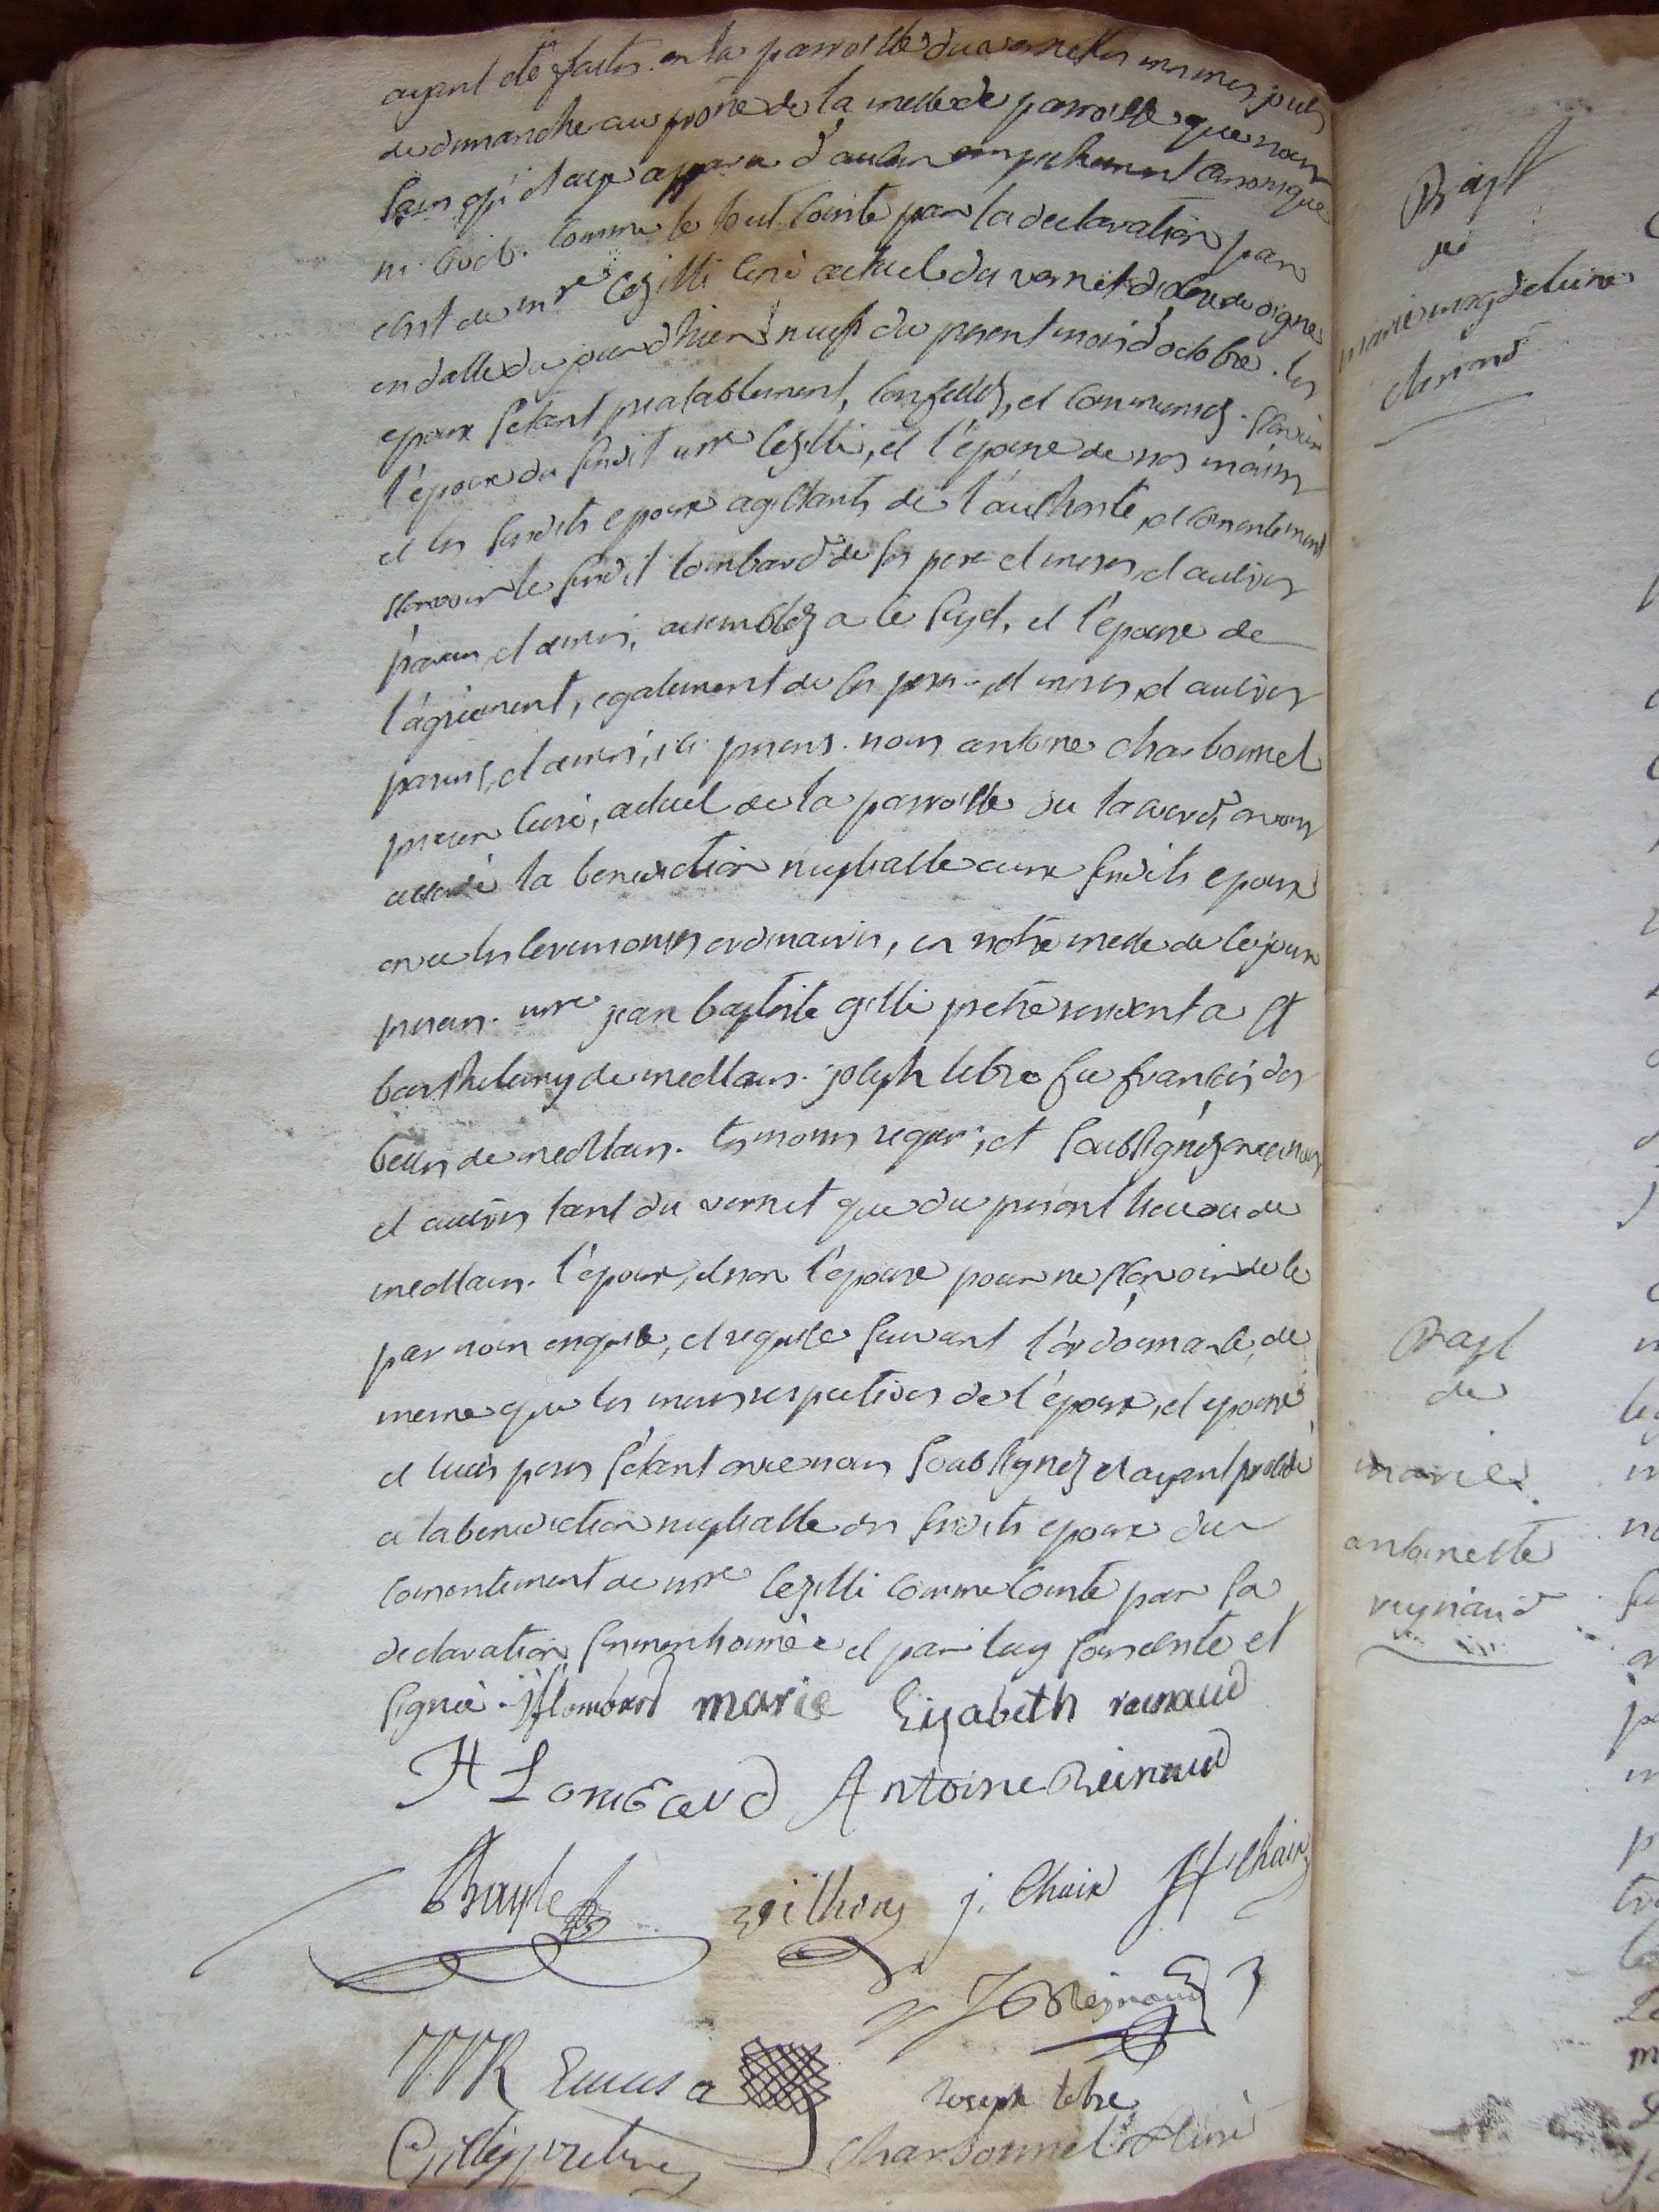 ayant eté faites en la parroisse du vernet les mesmes jours
de dimanche au prone de la messe de parroisse que nous
sans qu'il aye apparu d'aucun empechement canonique
ni civil. comme le tout conste par la declaration par
ecrit de mre Cezilli curé actuel du vernet diocese de digne
en datte du jour d'hier neuf du present mois d'octobre. les
epoux s'etant prealablement, confessez, et communiez. sçavoir
l'époux du susdit mre Cezilli, et l'épouse de nos mains
et les susdits epoux agissants de l'authorité, et consentement
sçavoir le susdit lombard de ses pere et mere, et autres
parens, et amis, assemblez a ce sujet, et l'épouse de
l'agréement, egalement de ses pere, et mere, et autres
parens, et amis, ici presens. nous antoine charbonnel
prieur curé, actuel de la parroisse du lauzet, avons
accordé la benediction nuptialle aux susdits epoux
avec les ceremonies ordinaires, en notre messe de ce jour
presens. mre jean baptiste gilli pretre residant a st
barthelemy de meollans. joseph lebre feu françois des
besses de meollans. temoins requis, et soussignez avec nous
et autres tant du vernet que du present terroir de
meollans. l'époux, et non l'épouse pour ne sçavoir de ce
par nous enquise, et requise suivant l'ordonnance, de
meme que les meres respectives de l'époux, et epouse
et leurs peres s'etant avec nous soussignez et ayant procédé
a la benediction nuptialle des susdits epoux du
consentement de mre Cezilli comme conste par sa
declaration susmentionnée et par luy souscrite et
signée. jf lombard marie Elizabeth reinaud
H Lombard Antoine Reinaud
Bayle j. Chaix Chaix
Reynaud
joseph lebre
Gilly pretre Charbonnel Curé
Bapt
de
marie magdeleine
clariond
Bapt
de
marie
antoinette
reynaud